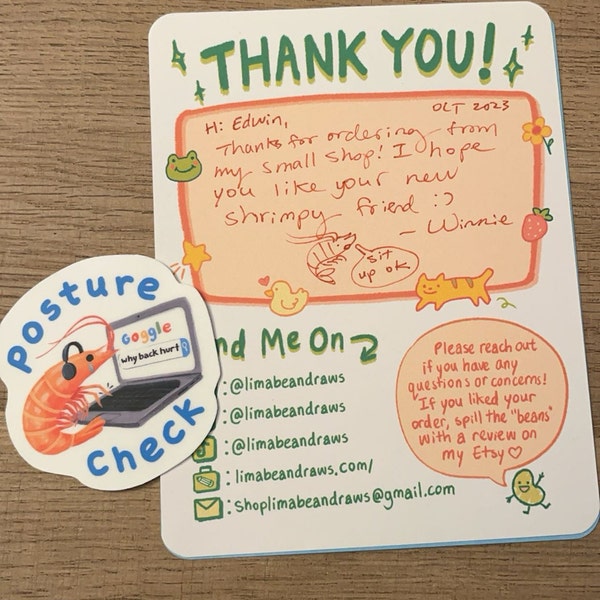 THANK YOU!
OCT 2023
Hi Edwin,
Thanks for ordering from
my small shop! I hope
you like your new
shrimpy friend :)
- Winnie
sit
up ok
posture
Goggle
why back hurt
check
nd Me On
: @limabeandraws
: @limabeandraws
: @limabeandraws
: limabeandraws.com/
: shoplimabeandraws@gmail.com
Please reach out
if you have any
questions or concerns!
If you liked your
order, spill the "beans"
with a review on
my Etsy♡